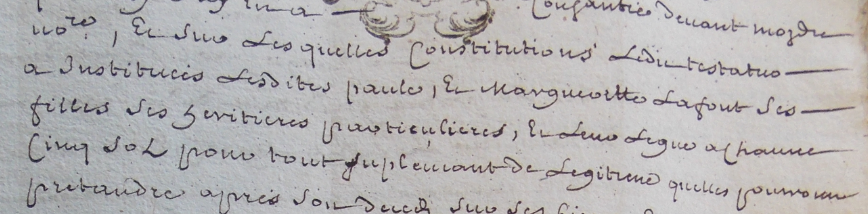 Constituée devant moydic
no^re, Et sur Lesquelles Constitutions Ledit testateur
a Instituées Lesdites paule, Et Margueritte Lafont ses
filles ses heritieres particulieres, Et Leur Legue a chacune
Cinq sol pour tout suplement de Legitime quelles pourroient
pretandre apres son deces sur ses